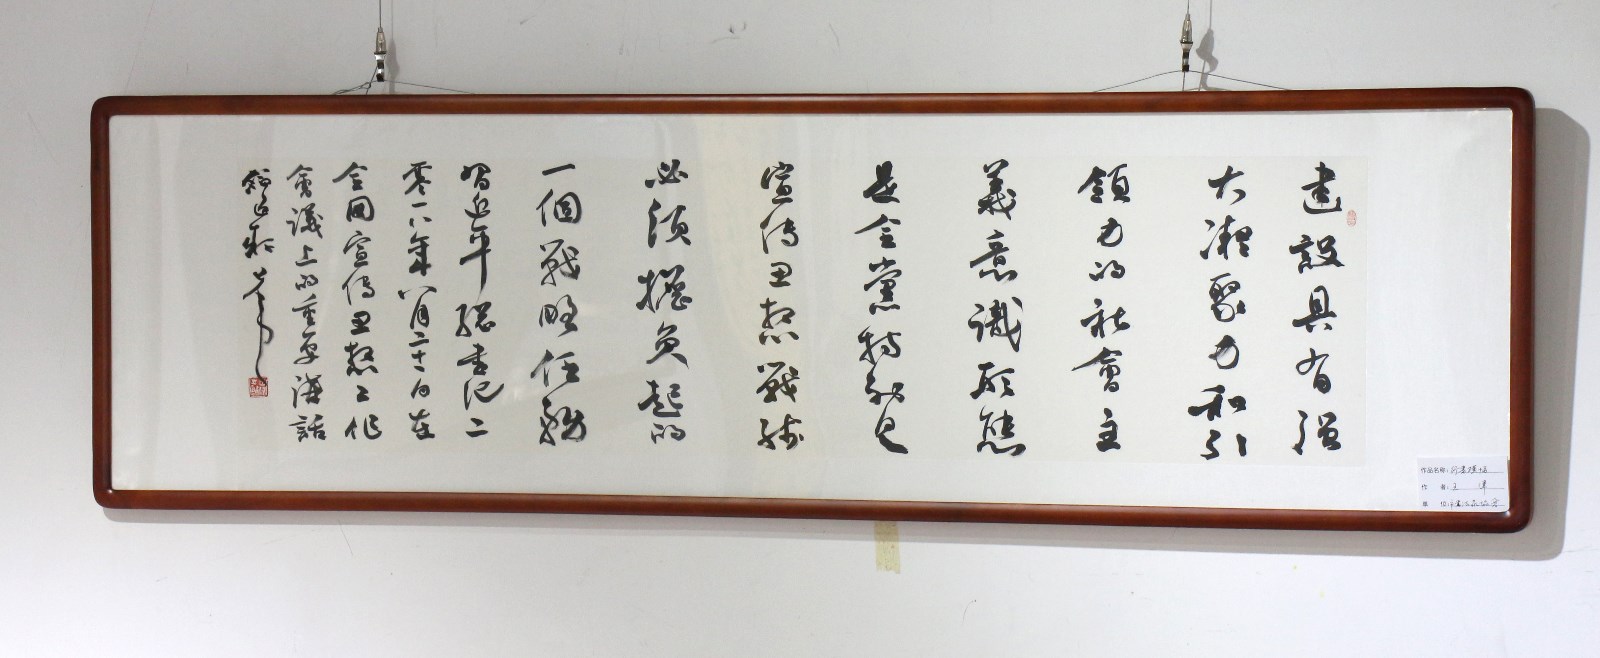 建設具有強
大凝聚力和引
領力的社會主
義意識形態
是全黨特別是
宣傳思想戰線
必須擔負起的
一個戰略任務
習近平總書記二
零一八年八月二十一日在
全國宣傳思想工作
會議上的重要講話
作品名称:行書横幅
作 者:王
单 位:市書法家協会